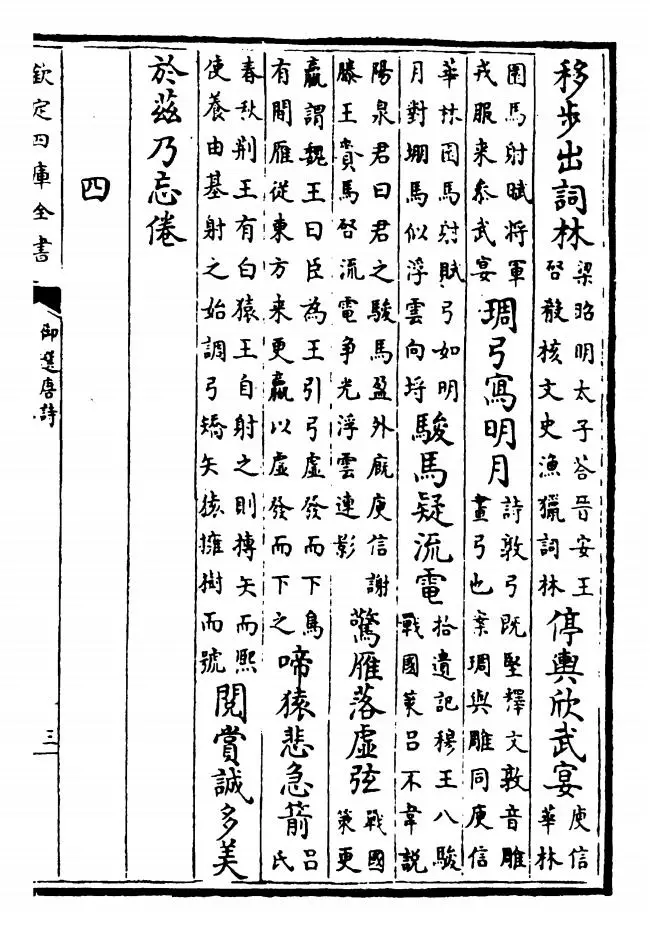 移步出詞林梁昭明太子荅晉安王啓殽核文史漁獵詞林停輿欣武宴庾信華林
園馬射賦將軍戎服来叅武宴琱弓寫明月詩敦弓既堅釋文敦音雕畫弓也案琱與雕同庾信
華林園馬射賦弓如明月對堋馬似浮雲向埓駿馬疑流電拾遺記穆王八駿戰國策吕不韋説
陽泉君曰君之駿馬盈外廐庾信謝滕王賚馬啓流電争光浮雲連影驚雁落虛弦戰國策更
羸謂魏王曰臣為王引弓虛發而下鳥有間雁從東方来更羸以虛發而下之啼猿悲急箭吕氏
春秋荆王有白猿王自射之則搏矢而熙使養由基射之始調弓矯矢猿擁樹而號閱賞誠多美
於兹乃忘倦
四
欽定四庫全書
御選唐詩
三